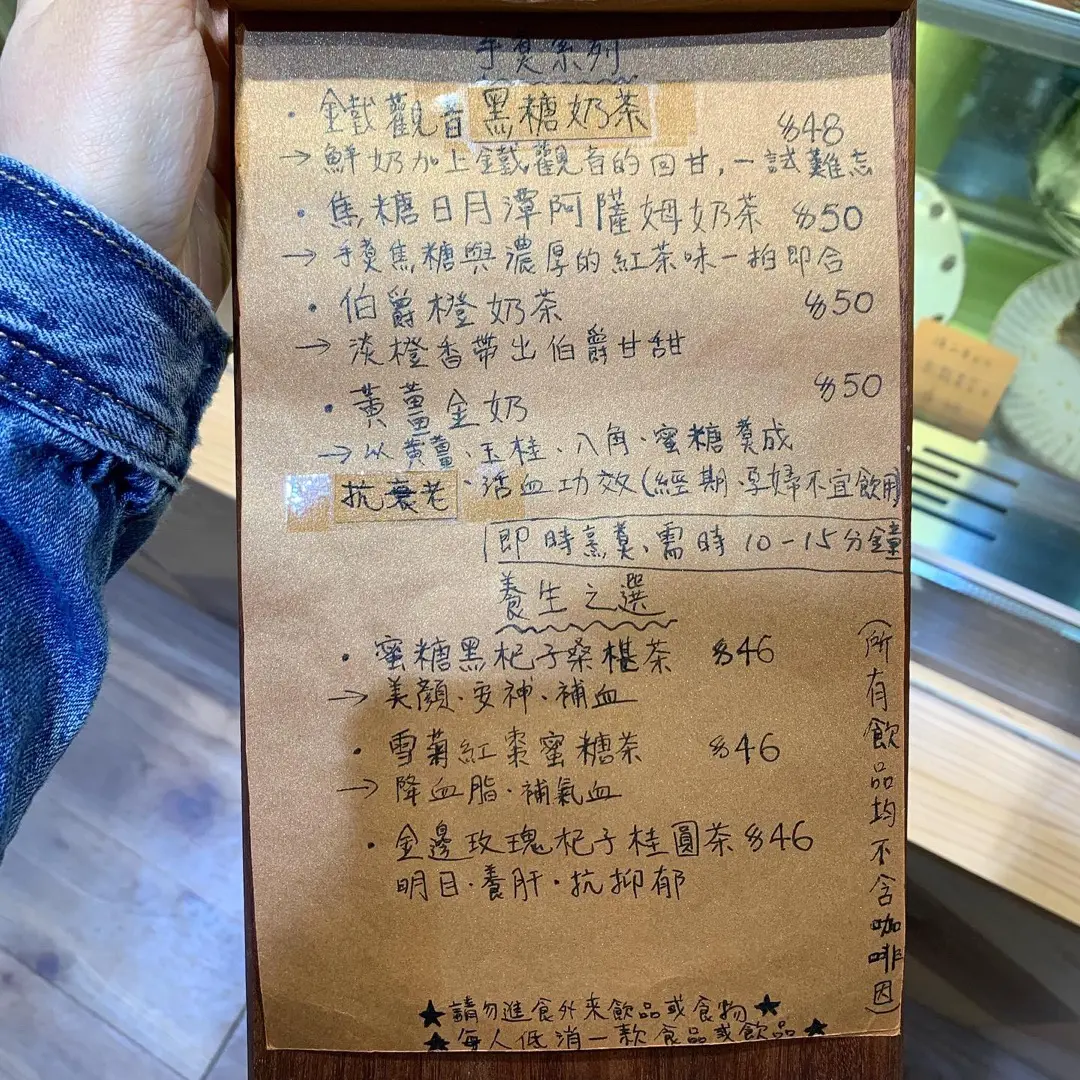 手煲系列
· 金鐵觀音黑糖奶茶 $48
→ 鮮奶加上鐵觀音的回甘，一試難忘
· 焦糖日月潭阿薩姆奶茶 $50
→ 手煲焦糖與濃厚的紅茶味一拍即合
· 伯爵橙奶茶 $50
→ 淡橙香帶出伯爵甘甜
· 黃薑金奶 $50
→ 以黃薑、玉桂、八角、蜜糖煲成
抗衰老·活血功效(經期·孕婦不宜飲用
即時烹煲、需時10-15分鐘
養生之選
· 蜜糖黑杞子桑椹茶 $46
→ 美顏·安神·補血
· 雪菊紅棗蜜糖茶 $46
→ 降血脂·補氣血
· 金邊玫瑰杞子桂圓茶 $46
明目·養肝·抗抑郁
(所有飲品均不含咖啡因)
★請勿進食外來飲品或食物★
★每人低消一款食品或飲品★